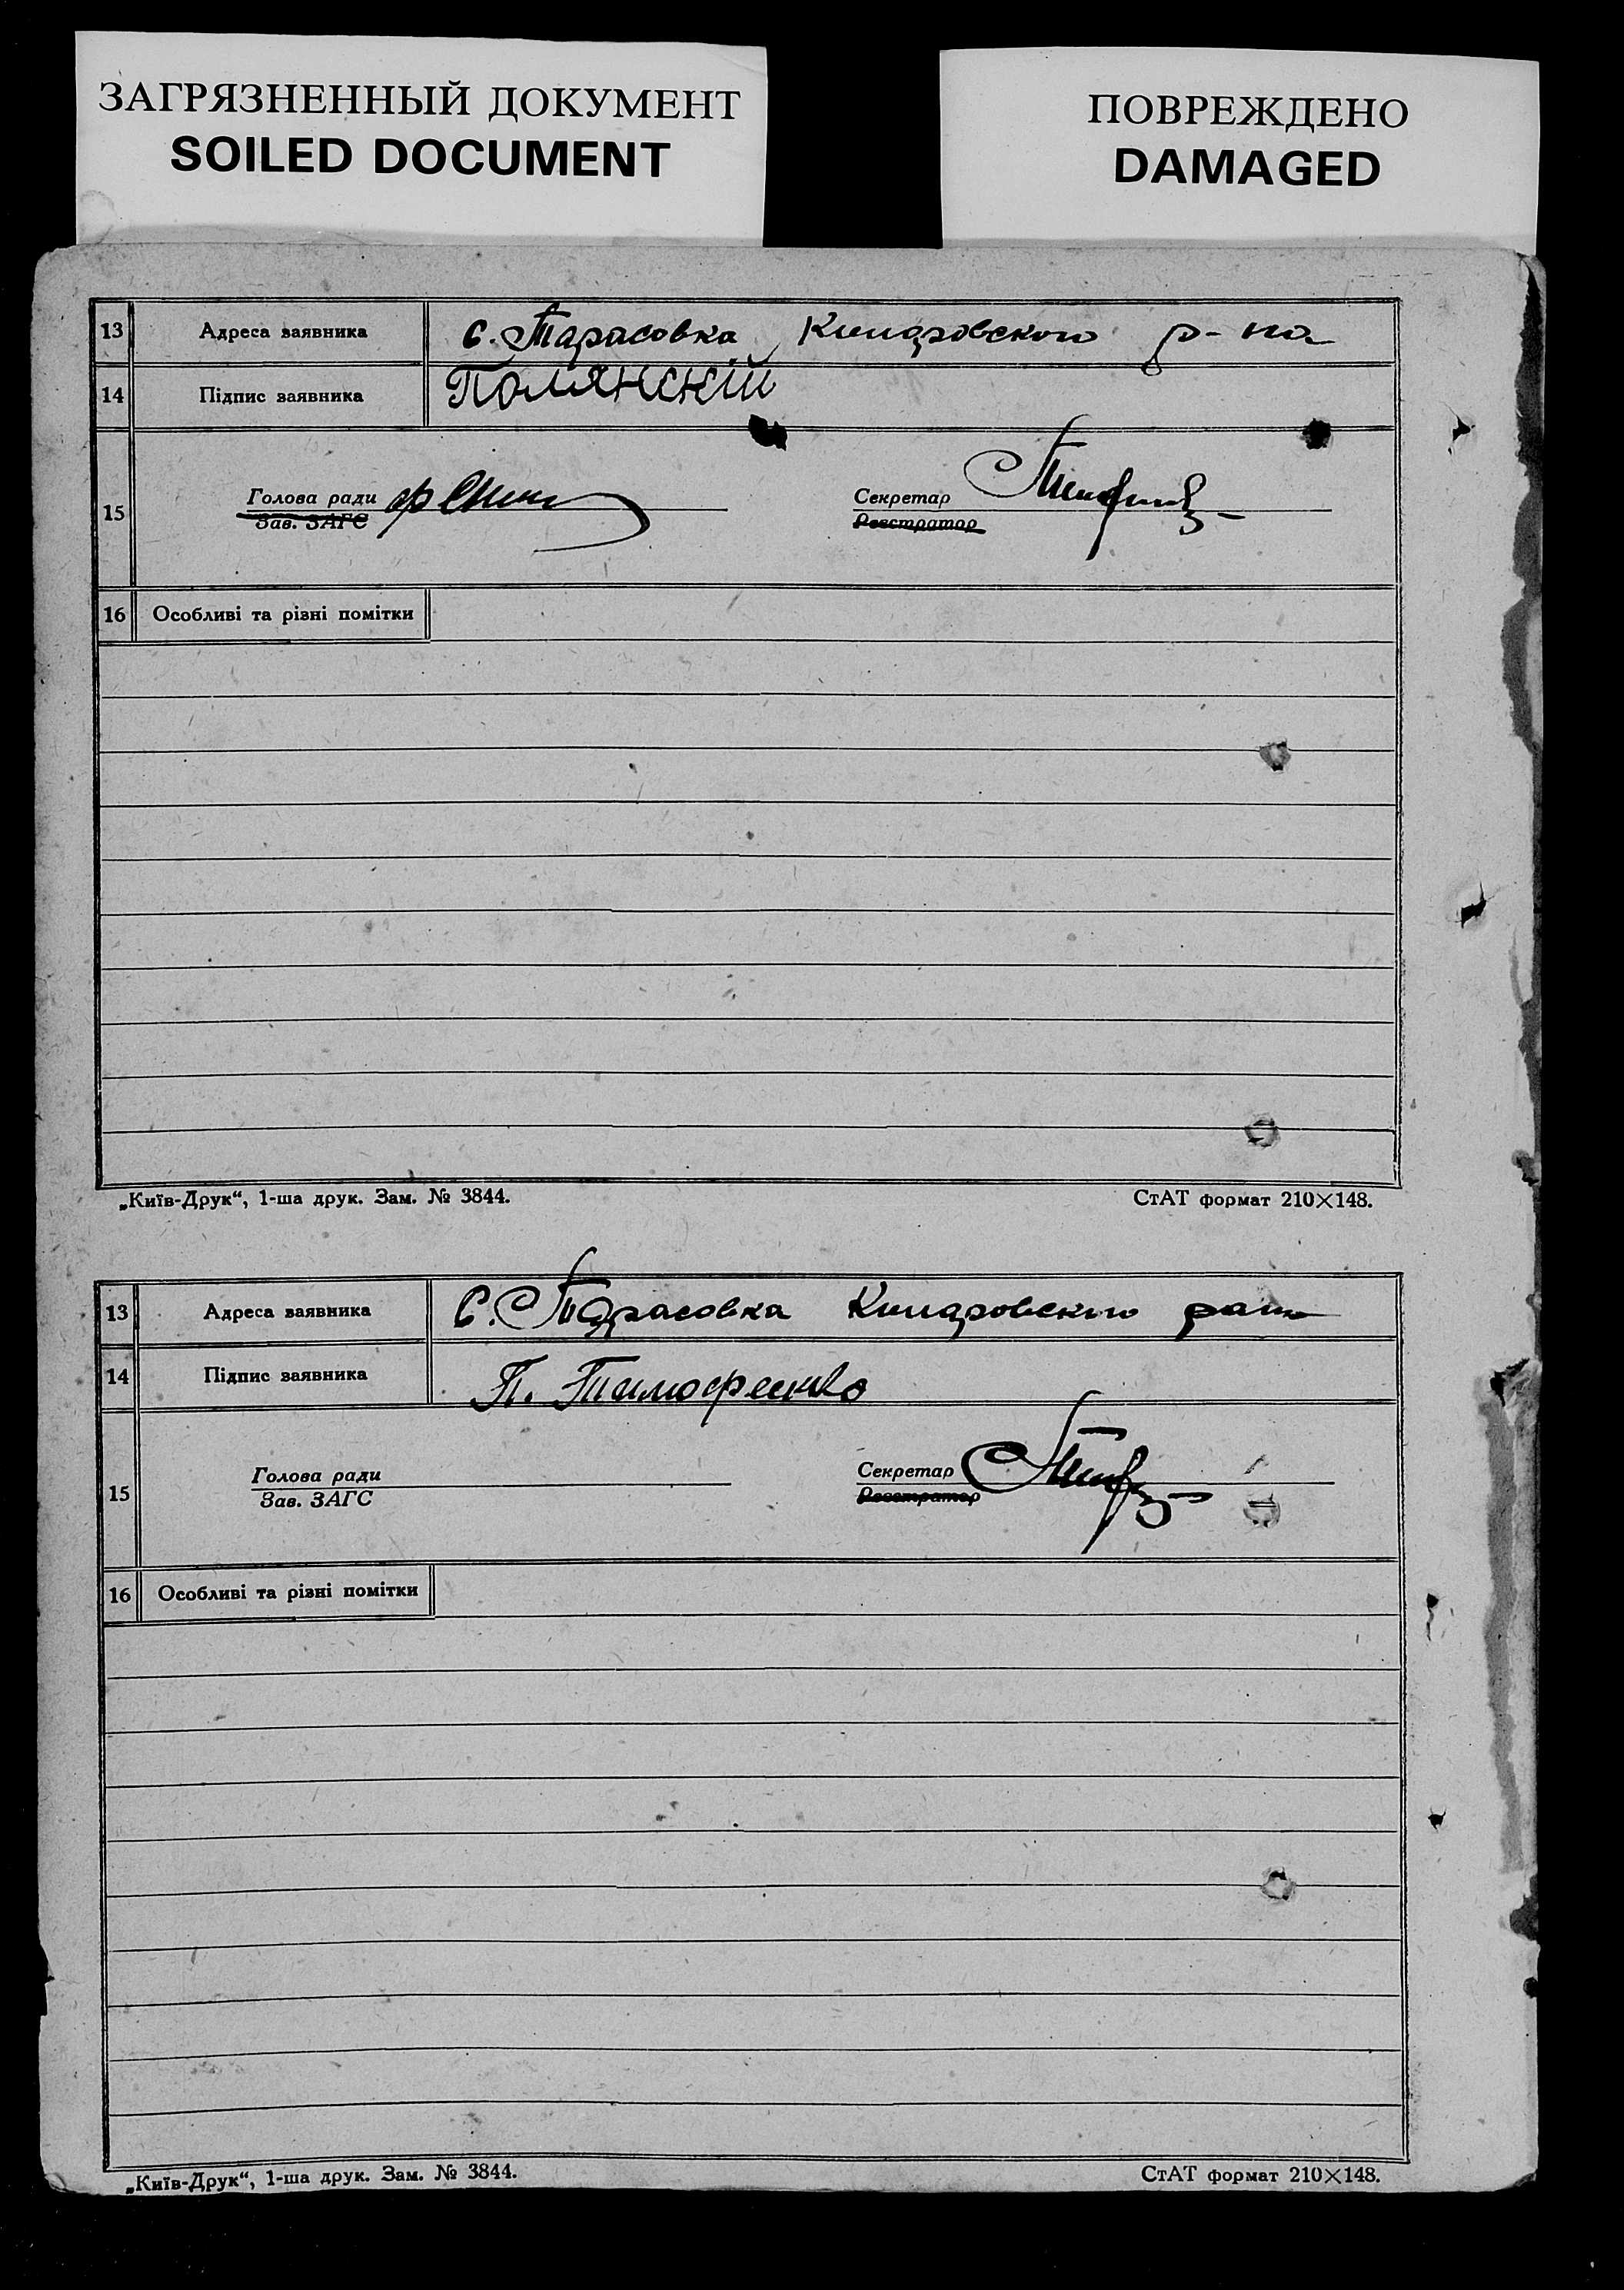 ЗАГРЯЗНЕННЫЙ ДОКУМЕНТ
SOILED DOCUMENT
ПОВРЕЖДЕНО
DAMAGED
13 Адреса заявника с. Тарасовка р-на
14 Підпис заявника Полянскій
15 Голова ради Секретар
Зав. ЗАГС Реєстратор
16 Особливі та різні помітки
„Київ-Друк“, 1-ша друк. Зам. № 3844. СтАТ формат 210×148.
13 Адреса заявника С. Тарасовка
14 Підпис заявника П. Тимофеенко
15 Голова ради Секретар
Зав. ЗАГС Реєстратор
16 Особливі та різні помітки
„Київ-Друк“, 1-ша друк. Зам. № 3844. СтАТ формат 210×148.